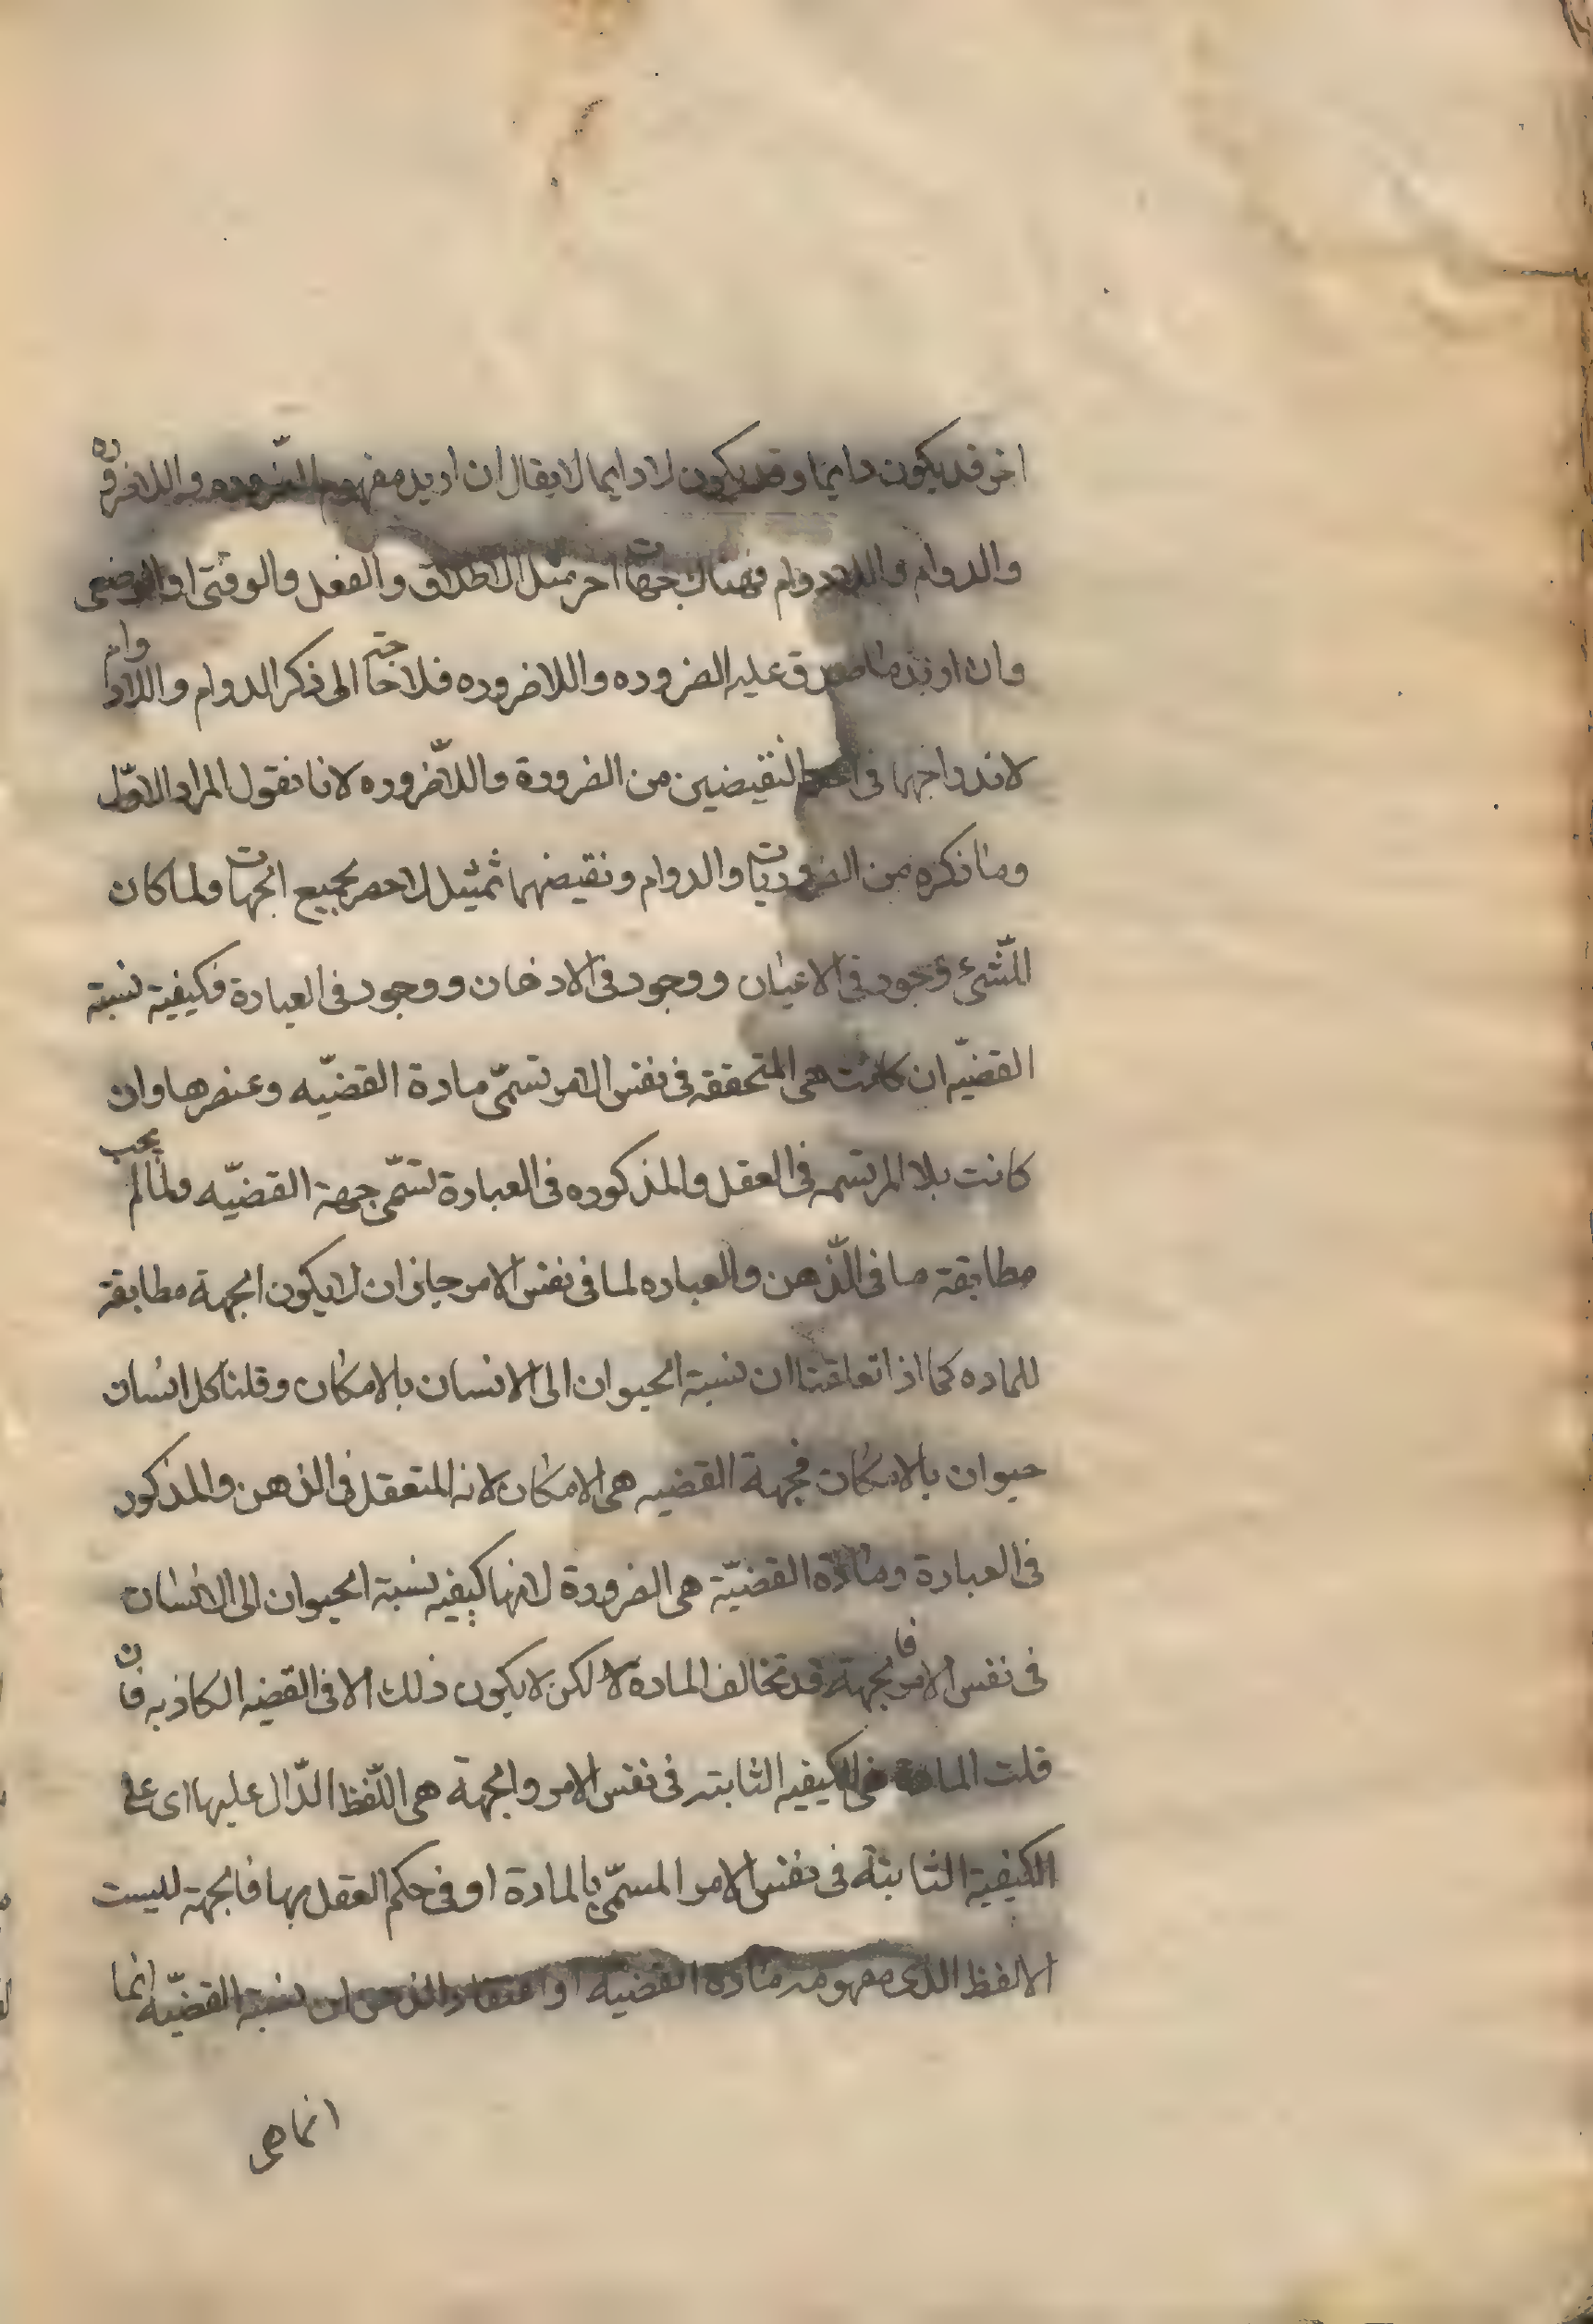 اخر قد يكون دايما وقد يكون لا دايما لا يقال ان اريد مفهوم الضروره واللاضروره
والدوام واللادوام فهناك جهات اخر مثل الاطلاق والفعل والوقتى او الوضعى
وان اريد ما صدق عليه الضروره واللاضروره فلا حاجة الى ذكر الدوام واللادوام
لاندراجهما فى احد النقيضين من الضرورة واللاضروره لانا نقول المراد الاوّل
وما ذكره من الضروريات والدوام ونقيضهما تمثيل لا حصر بجميع الجهات ولما كان
للشىء وجود فى الاعيان ووجود فى الاذهان ووجود فى العبارة فكيفية نسبة
القضيّه ان كانت هى المتحققه فى نفس الامر تسمّى مادة القضيّه وعنصرها وان
كانت بلا المرتسمه فى العقل والمذكوره فى العبارة تسمّى جهة القضيّه ولما لم يجب
مطابقة ما فى الذّهن والعباره لما فى نفس الامر جاز ان لا يكون الجهة مطابقة
للماده كما اذا تعلقنا ان نسبة الحيوان الى الانسان بالامكان وقلنا كل انسان
حيوان بالامكان فجهة القضيه هى الامكان لانه المتعقل فى الذهن والمذكور
فى العبارة ومادة القضيّة هى الضرورة لانها كيفيه نسبة الحيوان الى الانسان
فى نفس الامر فالجهة قد تخالف المادة لا لكن لا يكون ذلك الا فى القضيه الكاذبه فان
قلت المادة هى الكيفيه الثابته فى نفس الامر والجهة هى اللّفظ الدّال عليها اى على
الكيفية الثابتة فى نفس الامر المسمّى بالمادة او فى حكم العقل بها فالجهة ليست
الا لفظ الذى مفهومه مادة القضيه او اعتقاد الذهن ان نسبة القضيّه انما
انما هى